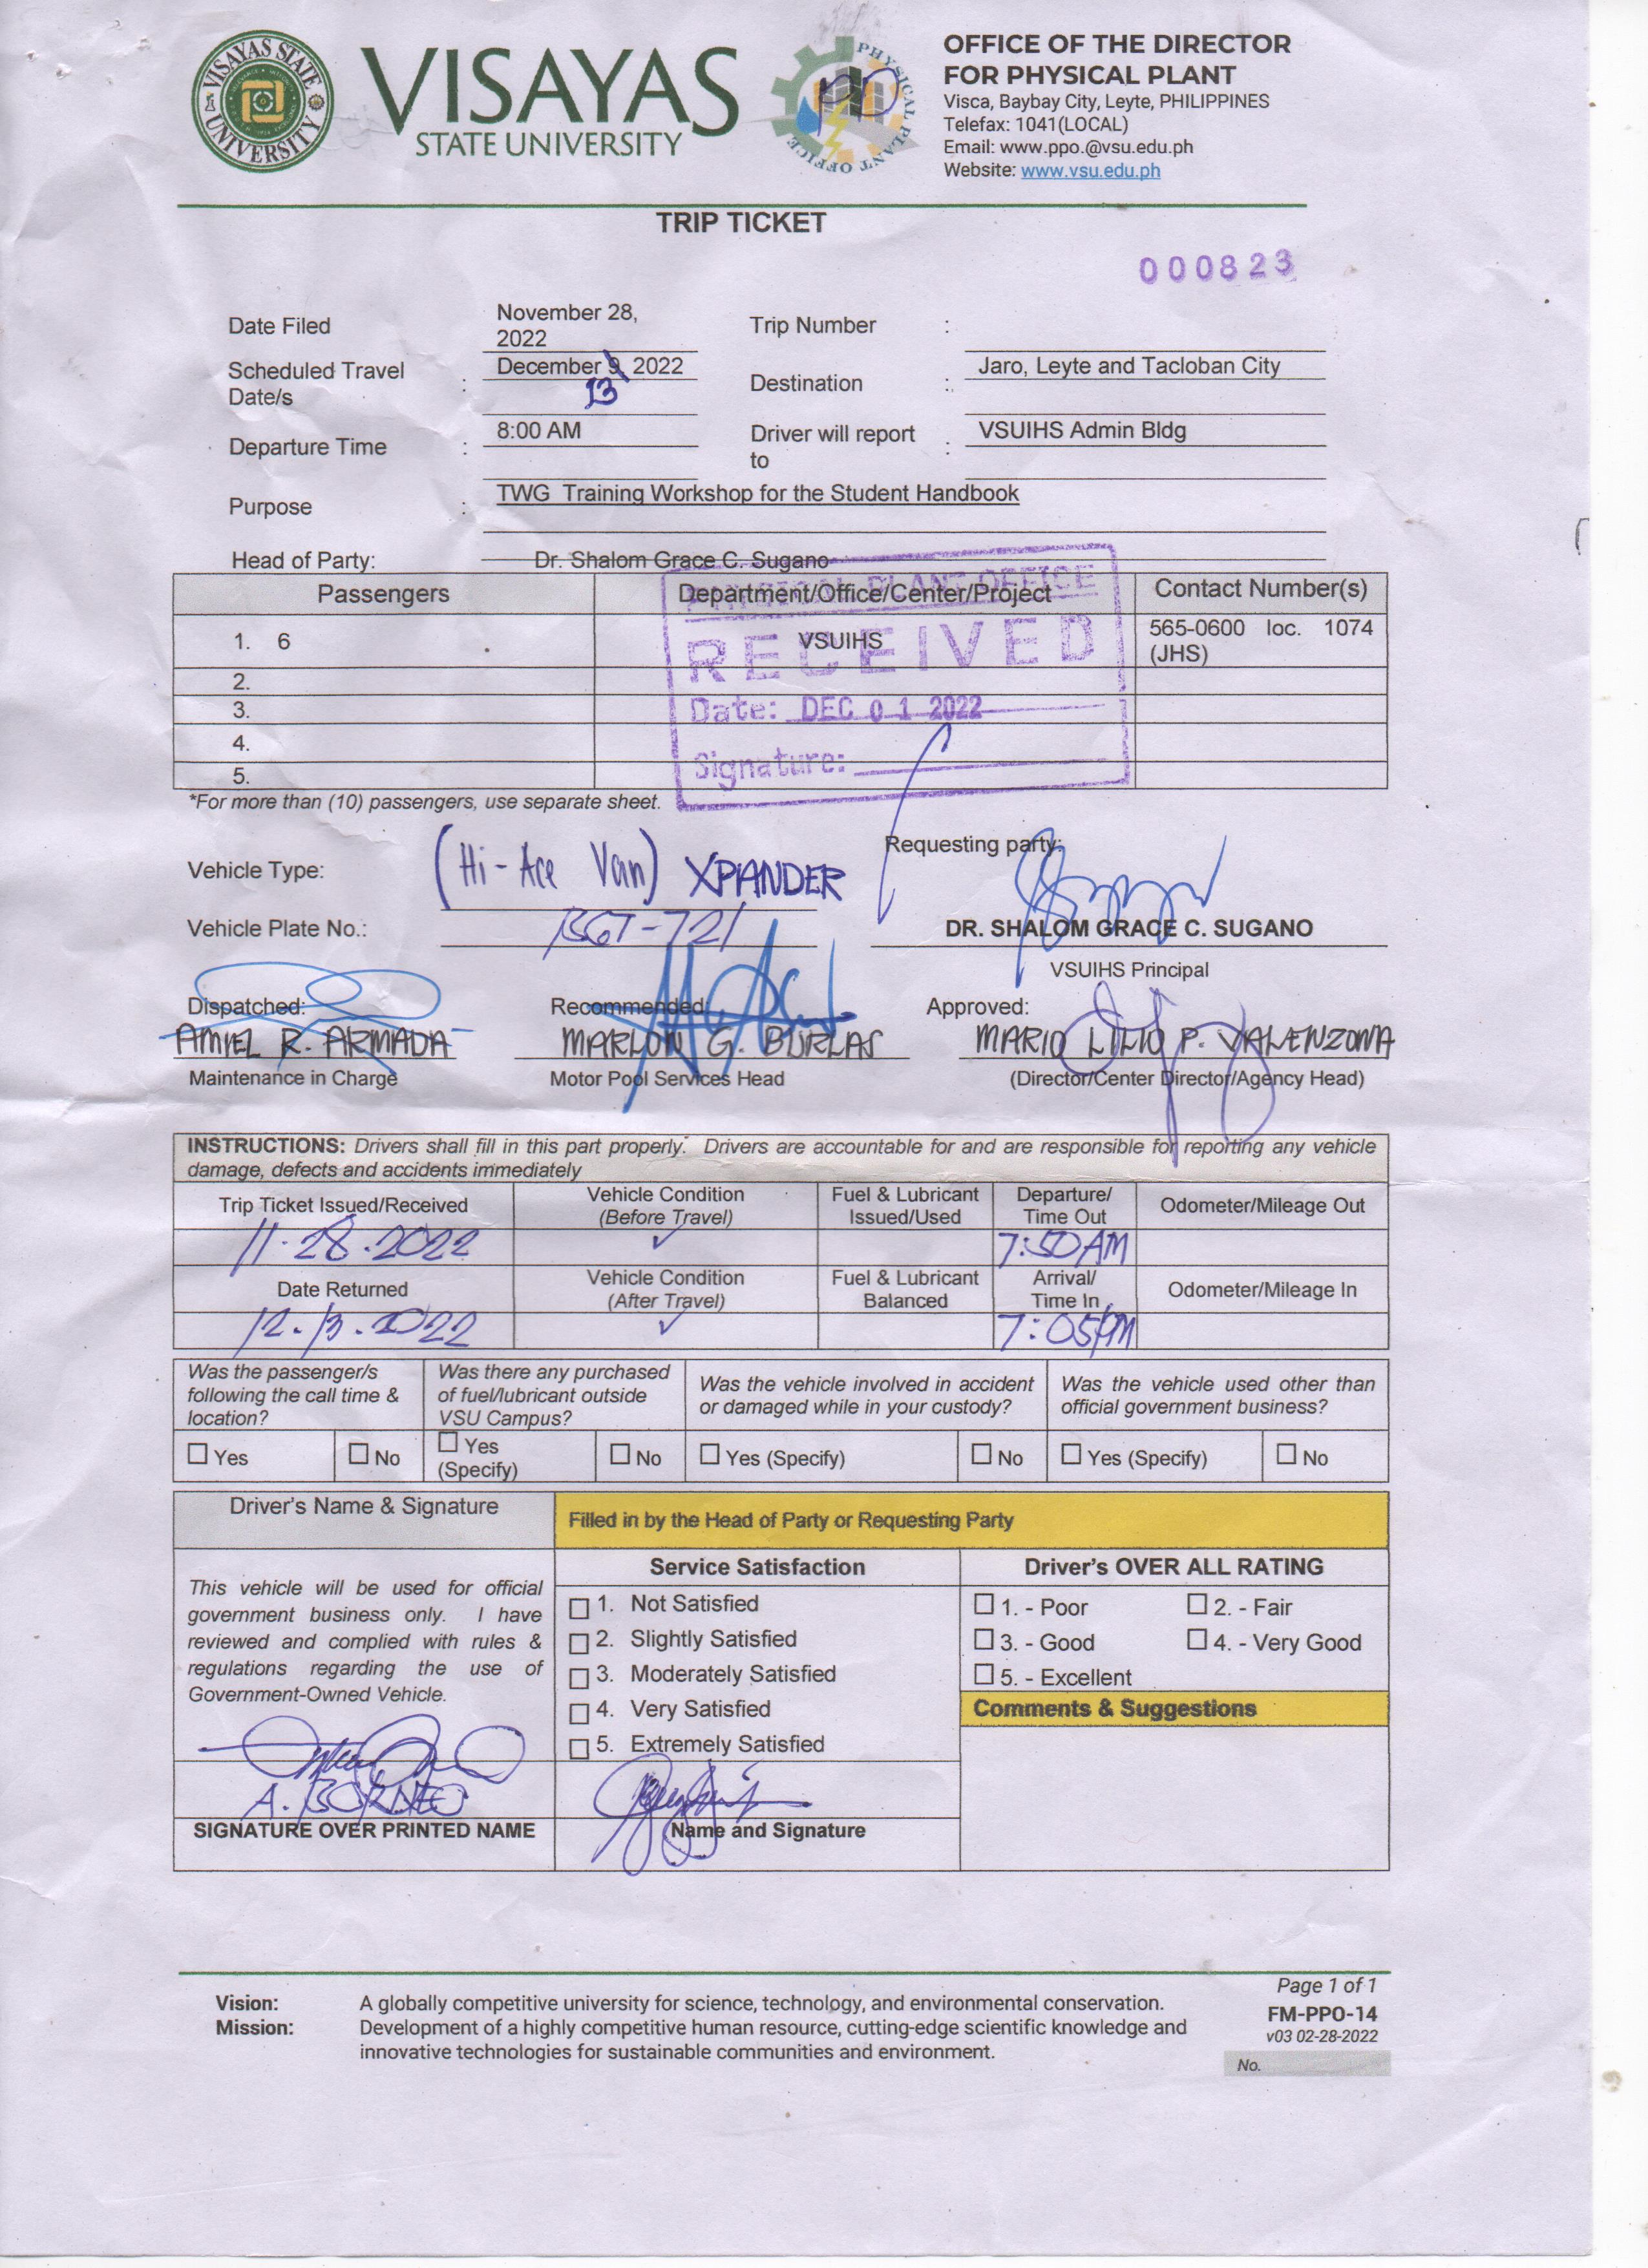 VISAYAS STATE UNIVERSITY
VISAYAS
STATE UNIVERSITY
PHYSICAL PLANT OFFICE
OFFICE OF THE DIRECTOR
FOR PHYSICAL PLANT
Visca, Baybay City, Leyte, PHILIPPINES
Telefax: 1041(LOCAL)
Email: www.ppo.@vsu.edu.ph
Website: www.vsu.edu.ph
TRIP TICKET
000823
Date Filed November 28, 2022 Trip Number :
Scheduled Travel Date/s : December 9, 2022 13 Destination : Jaro, Leyte and Tacloban City
Departure Time : 8:00 AM Driver will report to : VSUIHS Admin Bldg
Purpose : TWG Training Workshop for the Student Handbook
Head of Party: Dr. Shalom Grace C. Sugano
Passengers Department/Office/Center/Project Contact Number(s)
1. 6 VSUIHS 565-0600 loc. 1074 (JHS)
2.
3.
4.
5.
PHYSICAL PLANT OFFICE
RECEIVED
Date: DEC 01 2022
Signature:
*For more than (10) passengers, use separate sheet.
Requesting party:
Vehicle Type: (Hi-Ace Van) XPANDER
Vehicle Plate No.: DR. SHALOM GRACE C. SUGANO
VSUIHS Principal
Dispatched: Recommended: Approved:
AMIEL R. ARMADA MARLON G. BURLAS MARIO LILIO P. VALENZONA
Maintenance in Charge Motor Pool Services Head (Director/Center Director/Agency Head)
INSTRUCTIONS: Drivers shall fill in this part properly. Drivers are accountable for and are responsible for reporting any vehicle
damage, defects and accidents immediately
Trip Ticket Issued/Received Vehicle Condition (Before Travel) Fuel & Lubricant Issued/Used Departure/ Time Out Odometer/Mileage Out
11.28.2022 ✓ 7:50AM
Date Returned Vehicle Condition (After Travel) Fuel & Lubricant Balanced Arrival/ Time In Odometer/Mileage In
12.13.2022 ✓ 7:05PM
Was the passenger/s following the call time & location? Was there any purchased of fuel/lubricant outside VSU Campus? Was the vehicle involved in accident or damaged while in your custody? Was the vehicle used other than official government business?
☐ Yes ☐ No ☐ Yes (Specify) ☐ No ☐ Yes (Specify) ☐ No ☐ Yes (Specify) ☐ No
Driver's Name & Signature Filled in by the Head of Party or Requesting Party
Service Satisfaction Driver's OVER ALL RATING
This vehicle will be used for official
government business only. I have
reviewed and complied with rules &
regulations regarding the use of
Government-Owned Vehicle.
☐ 1. Not Satisfied
☐ 2. Slightly Satisfied
☐ 3. Moderately Satisfied
☐ 4. Very Satisfied
☐ 5. Extremely Satisfied
☐ 1. - Poor ☐ 2. - Fair
☐ 3. - Good ☐ 4. - Very Good
☐ 5. - Excellent
Comments & Suggestions
A. BORNEO
SIGNATURE OVER PRINTED NAME Name and Signature
Page 1 of 1
Vision: A globally competitive university for science, technology, and environmental conservation.
Mission: Development of a highly competitive human resource, cutting-edge scientific knowledge and
innovative technologies for sustainable communities and environment.
FM-PPO-14
v03 02-28-2022
No.